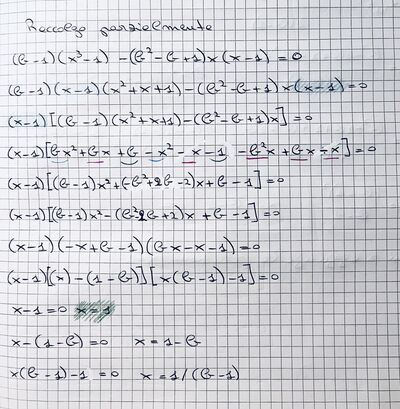 Raccolgo parzialmente
(b-1)(x³-1) -(b²-b+1)x(x-1)=0
(b-1)(x-1)(x²+x+1)-(b²-b+1)x(x-1)=0
(x-1)[(b-1)(x²+x+1)-(b²-b+1)x]=0
(x-1)[bx²+bx+b-x²-x-1-b²x+bx-x]=0
(x-1)[(b-1)x²+(-b²+2b-2)x+b-1]=0
(x-1)[(b-1)x²-(b²2b+2)x+b-1]=0
(x-1)(-x+b-1)(bx-x-1)=0
(x-1)[(x)-(1-b)][x(b-1)-1]=0
x-1=0 x=1
x-(1-b)=0 x=1-b
x(b-1)-1=0 x=1/(b-1)